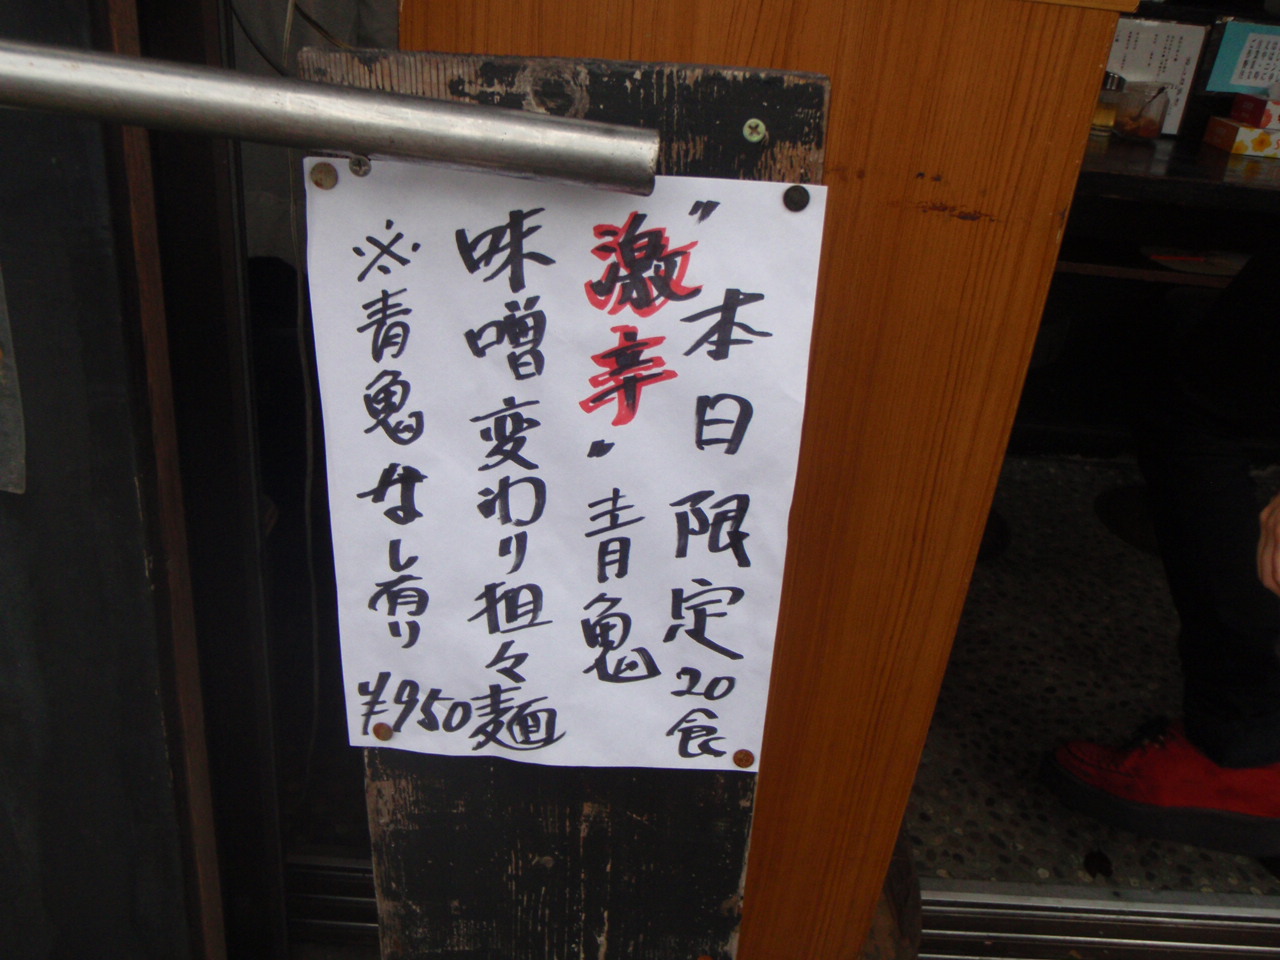 本日限定20食
"激辛"青鬼
味噌変わり担々麺
※青鬼なし有り ¥950